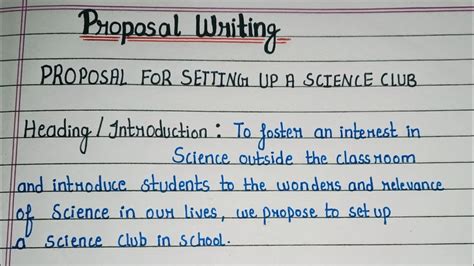 Proposal Writing
PROPOSAL FOR SETTING UP A SCIENCE CLUB
Heading / Introduction : To foster an interest in
Science outside the classroom
and introduce students to the wonders and relevance
of Science in our lives, we propose to set up
a science club in school.